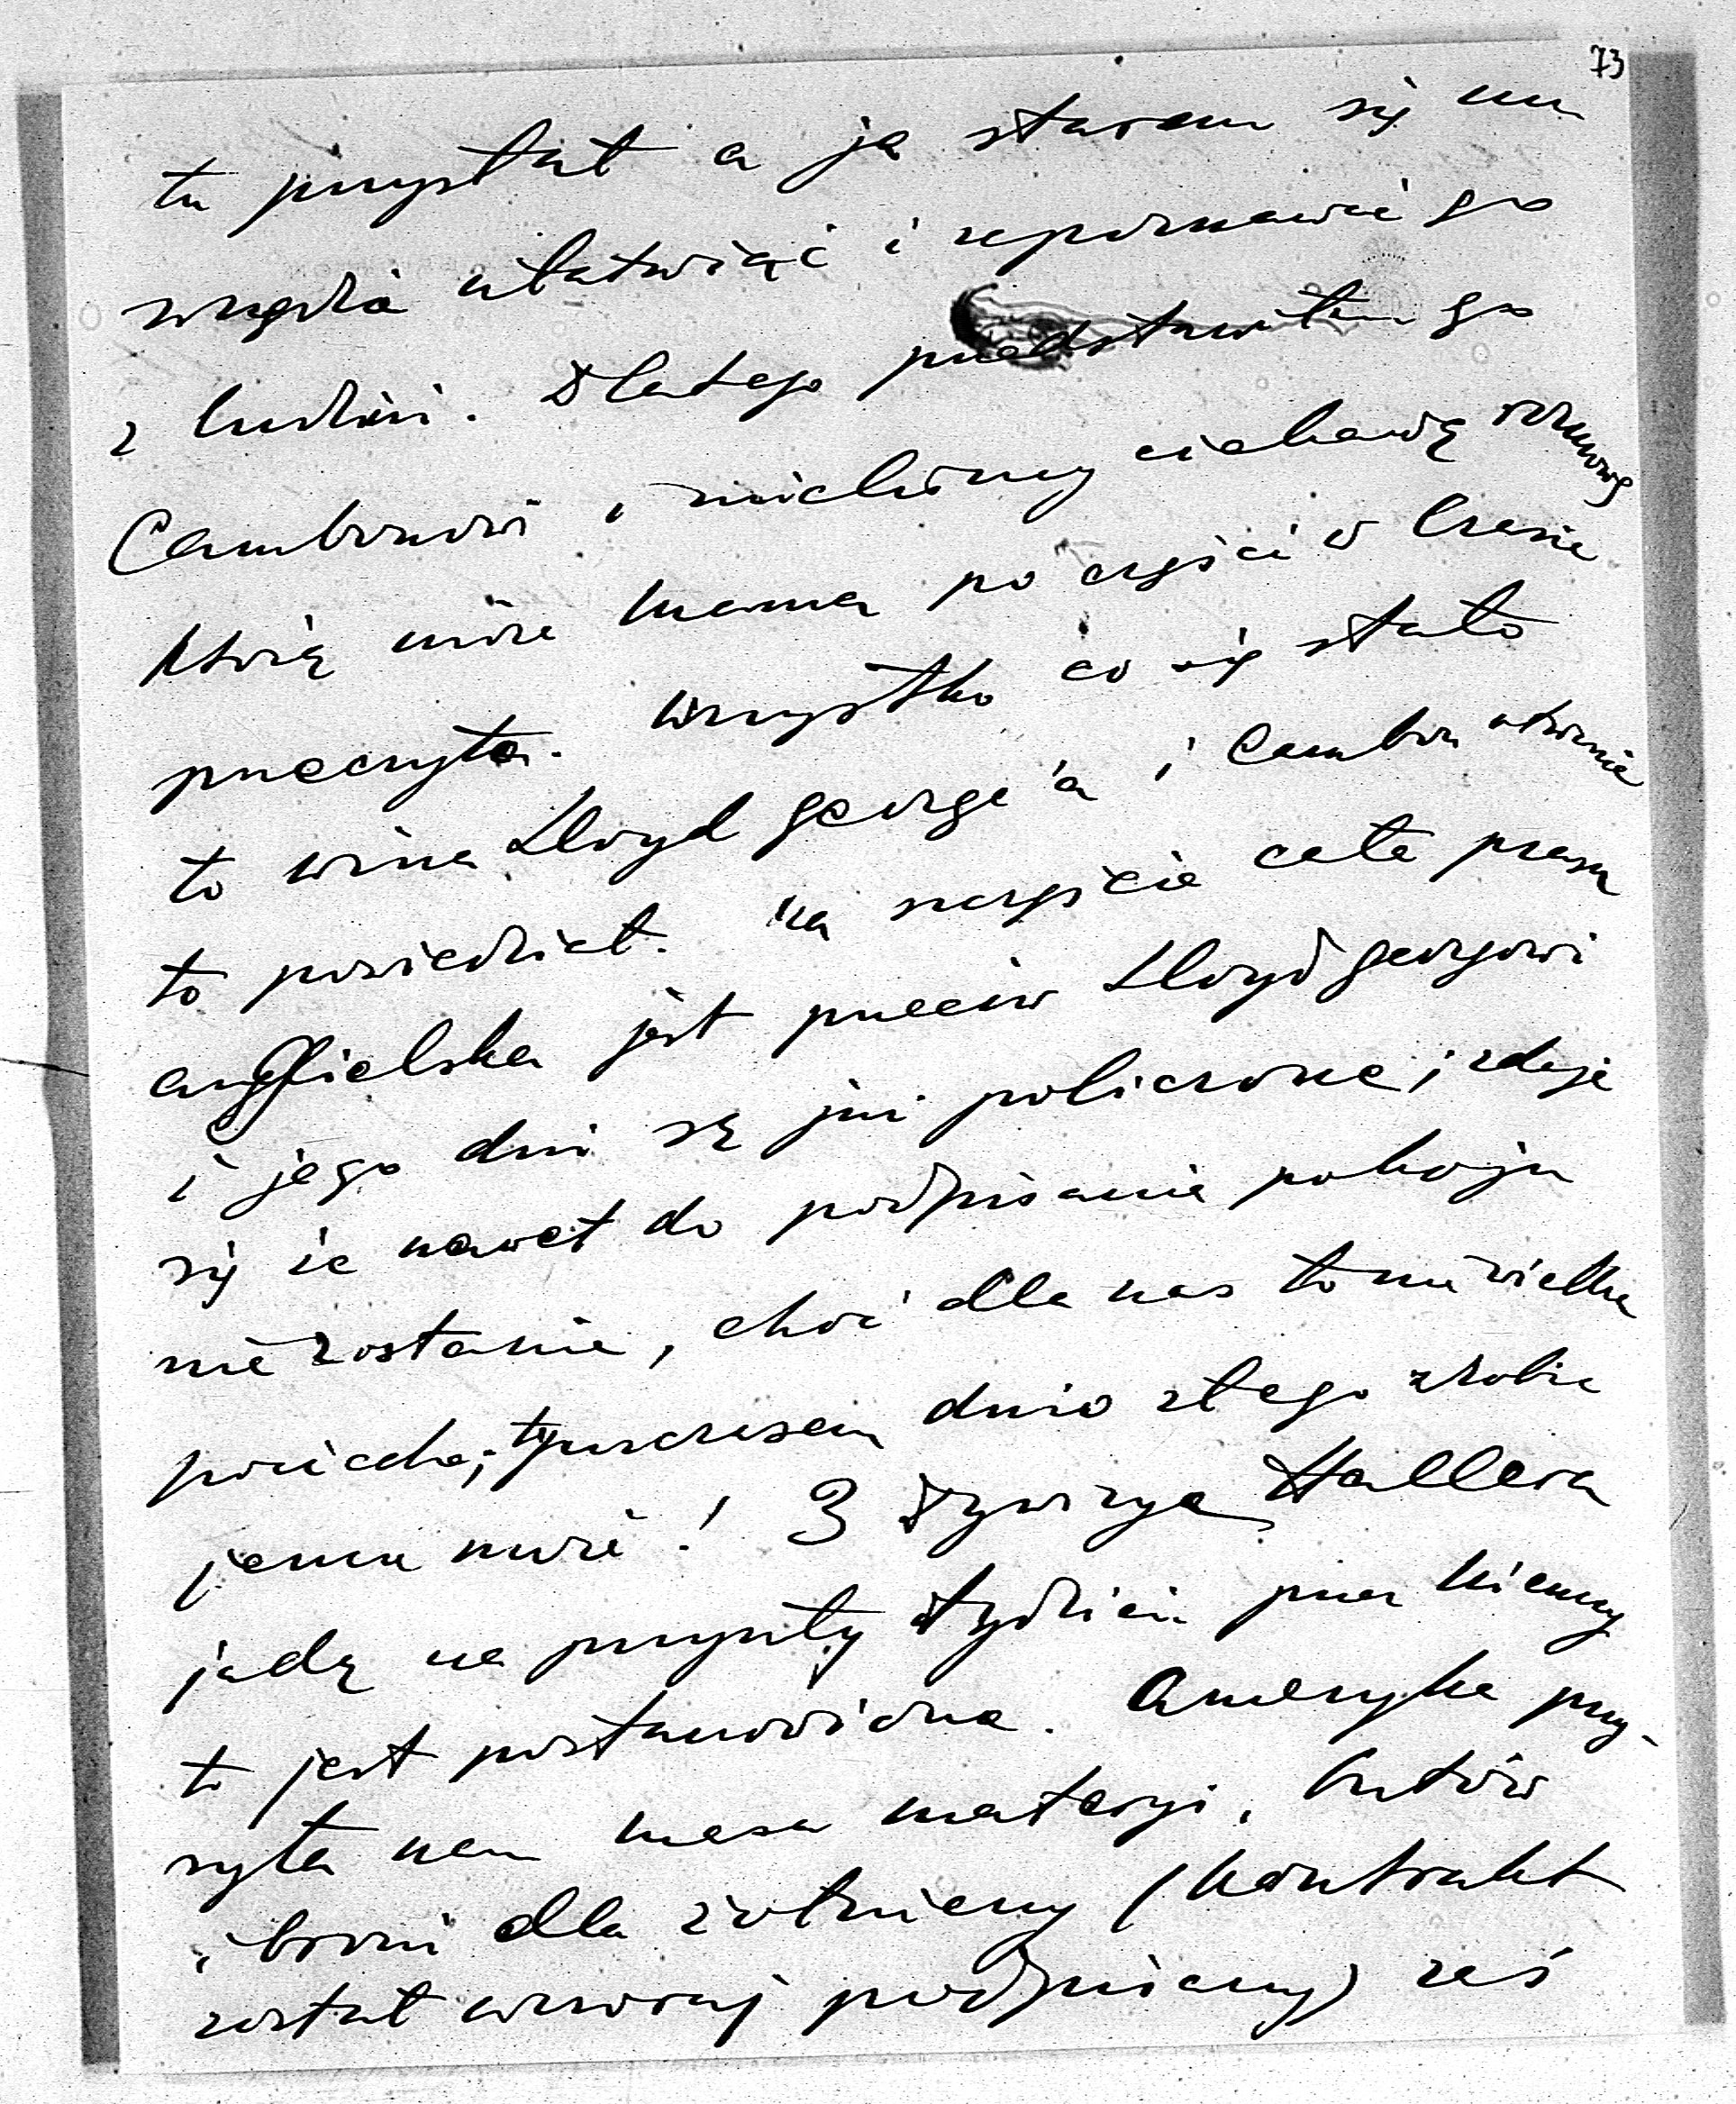 73
tu przysłał a ja staram się mu
wszędzie ułatwiać i zapoznawać go
z ludźmi. Dlatego przedstawiłem go
Cambonowi i mieliśmy ciekawą rozmowę
którą może mama po części w Czasie
przeczyta. Wszystko co się stało
to wina Lloyd George'a i Cambon otwarcie
to powiedział. Na szczęście cała prasa
angielska jest przeciw Lloyd Georgowi
i jego dni są już policzone, i zdaje
się że nawet do podpisania pokoju
nie zostanie, choć dla nas to nie wielka
pociecha; tymczasem dużo złego zrobić
jemu może! 3 Dywizye Hallera
jadą na przyszły tydzień przez Niemcy
to jest postanowione. Ameryka przy-
syła nam masa materyi, butów
i broni dla żołnierzy (kontrakt
został wczoraj podpisany) zaś